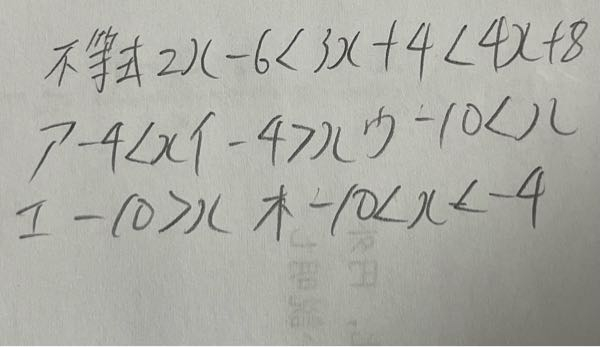 不等式 2x-6<3x+4<4x+8
ア -4<x イ -4>x ウ -10<x
エ -10>x オ -10<x<-4